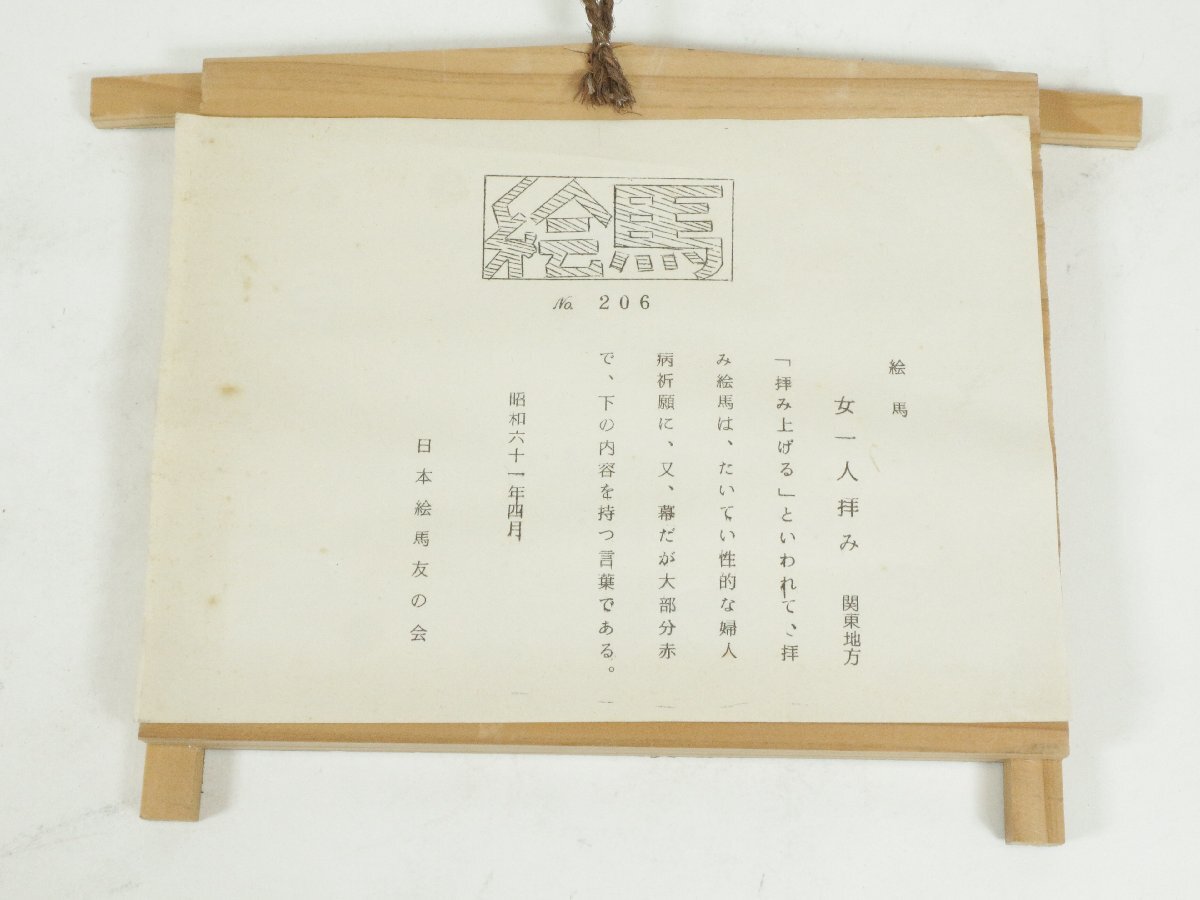 絵馬
No. 206
絵馬
女一人拝み 関東地方
「拝み上げる」といわれて、拝
み絵馬は、たいてい性的な婦人
病祈願に、又、幕だが大部分赤
で、下の内容を持つ言葉である。
昭和六十一年四月
日本絵馬友の会